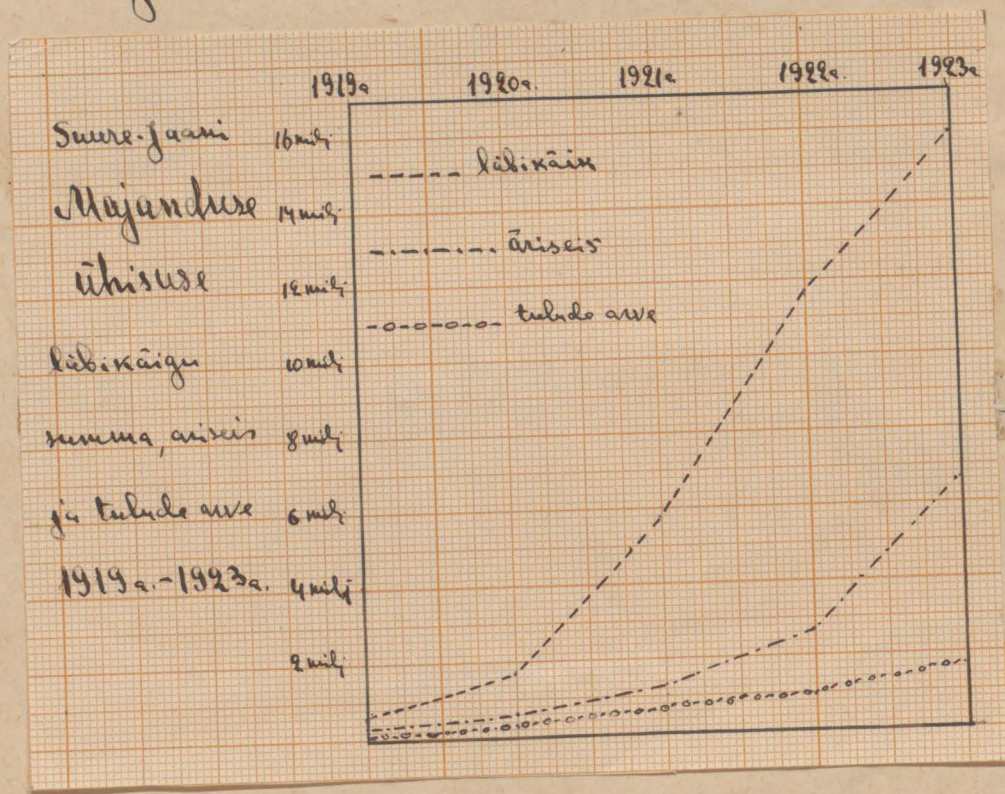 1919a 1920a. 1921a 1922a. 1923a
Suure-Jaani
Majanduse
ühisuse
läbikäigu
summa, äriseis
ja tulude arve
1919a.-1923a.
16 milj
14 milj
12 milj
10 milj
8 milj
6 milj
4 milj
2 milj
läbikäik
äriseis
tulude arve